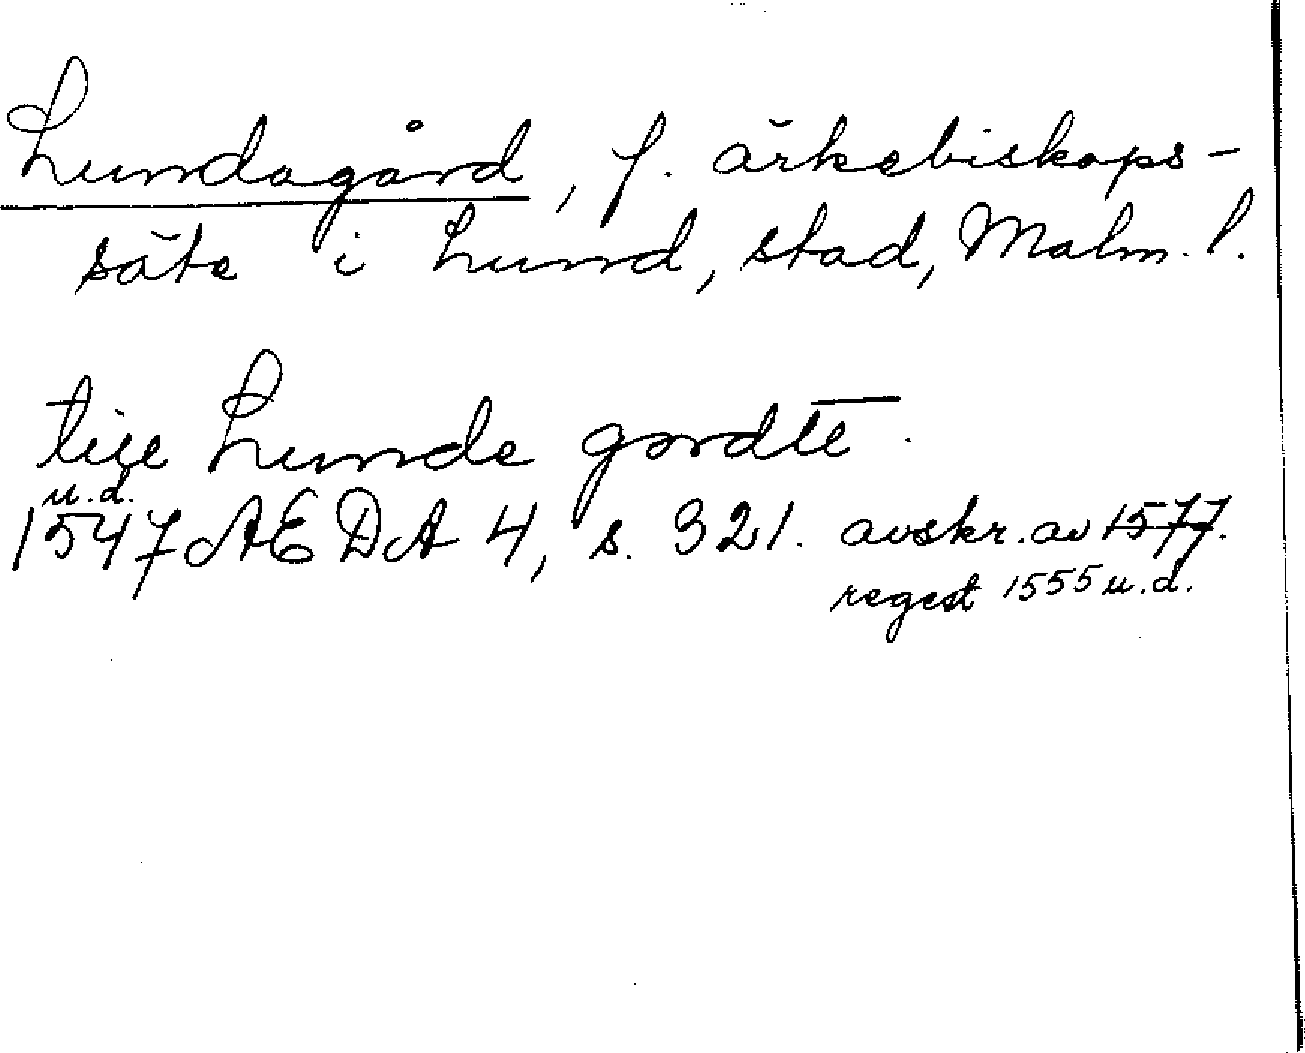 Lundagård, f. ärkebiskops-
säte i Lund, stad, Malm. l.
till Lunde gordtē.
u.d.
1547 AEDA 4, s. 321. avskr. av 1577.
regest 1555 u.d.